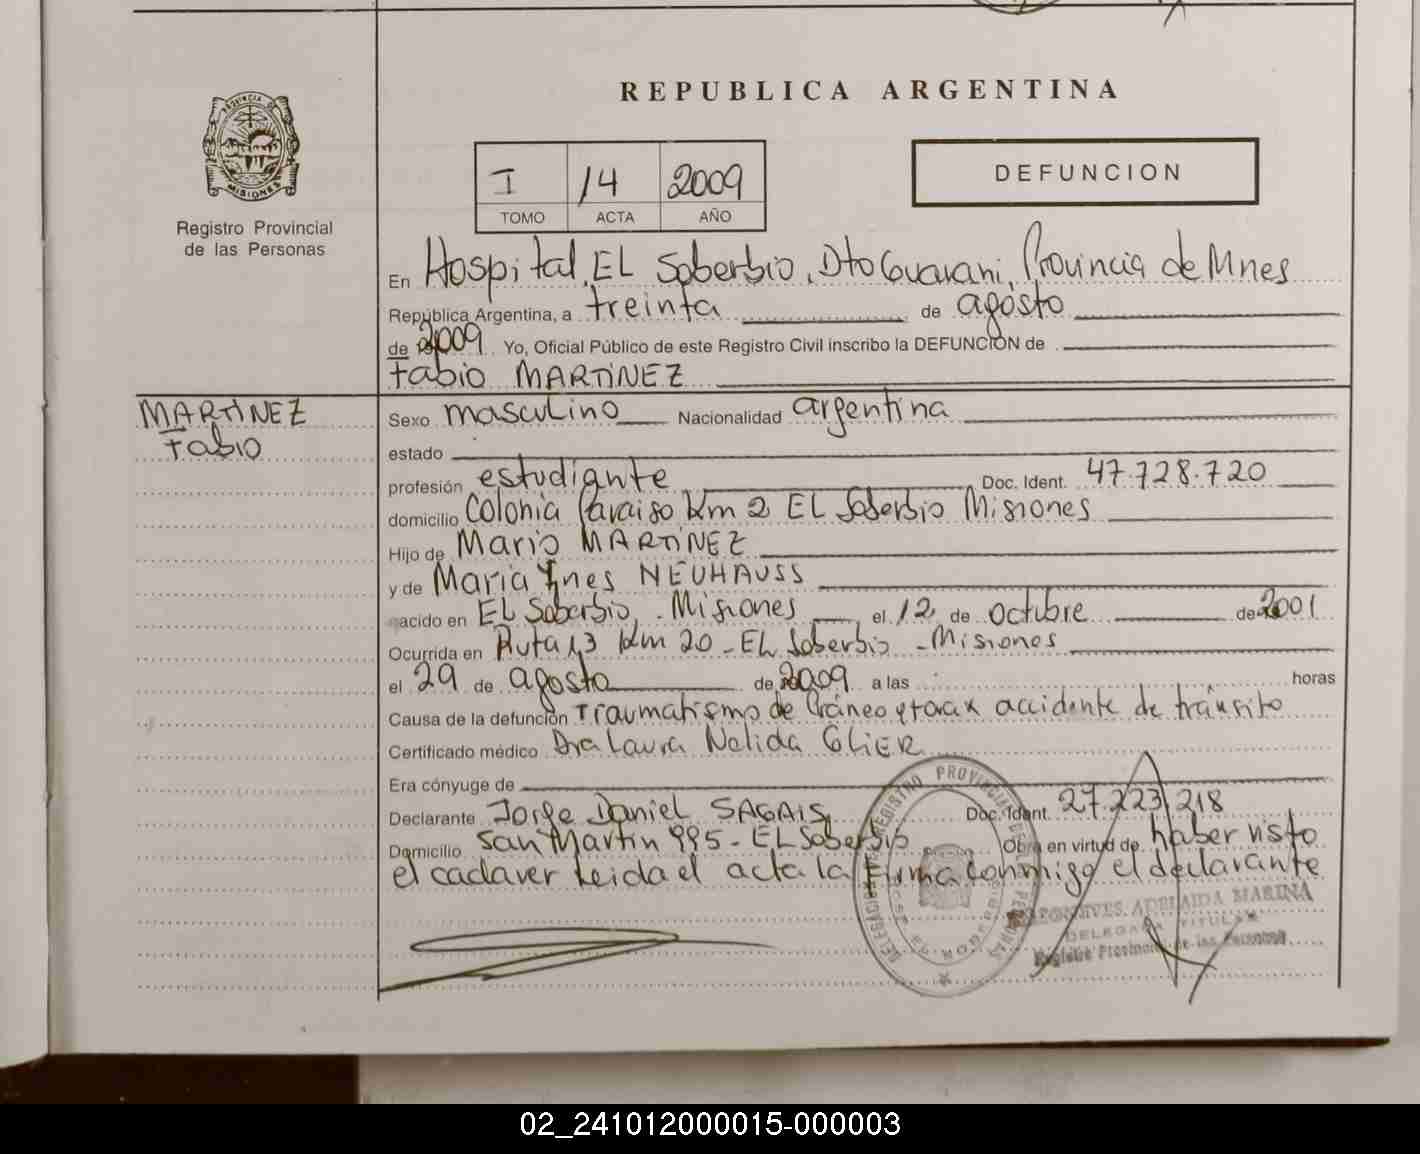 REPUBLICA ARGENTINA
PROVINCIA DE
MISIONES
Registro Provincial
de las Personas
I 14 2009
TOMO ACTA AÑO
DEFUNCION
En Hospital, EL Soberbio, Dto Guarani, Provincia de Mnes
República Argentina, a treinta de agosto
de 2009 Yo, Oficial Público de este Registro Civil inscribo la DEFUNCIÓN de
Fabio MARTINEZ
MARTINEZ
Fabio
Sexo masculino Nacionalidad argentina
estado
profesión estudiante Doc. Ident. 47.728.720
domicilio Colonia Paraiso Km 2 EL Soberbio Misiones
Hijo de Mario MARTINEZ
y de Maria Ynes NEUHAUSS
nacido en EL Soberbio - Misiones el 12 de octubre de 2001
Ocurrida en Ruta 13 Km 20 - EL Soberbio - Misiones
el 29 de agosto de 2009 a las horas
Causa de la defunción Traumatismo de Cráneo y torax accidente de tránsito
Certificado médico Dra Laura Nelida GLIER
Era cónyuge de
Declarante Jorge Daniel SAGAIS Doc. Ident. 27.223.218
Domicilio San Martin 995 - EL Soberbio Obra en virtud de haber visto
el cadaver Leida el acta la Firma conmigo el declarante
REGISTRO PROVINCIAL DE LAS PERSONAS
ADELAIDA MARINA
DELEGADA TITULAR
Registro Provincial de las Personas
02_241012000015-000003